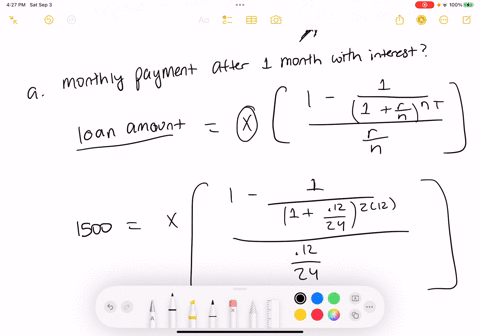 4:27 PM Sat Sep 3
100%
a. monthly payment after 1 month with interest?
loan amount = X ( 1 - 1 / (1 + r/n)^nT / r/n )
1500 = X ( 1 - 1 / (1 + .12/24)^2(12) / .12/24 )